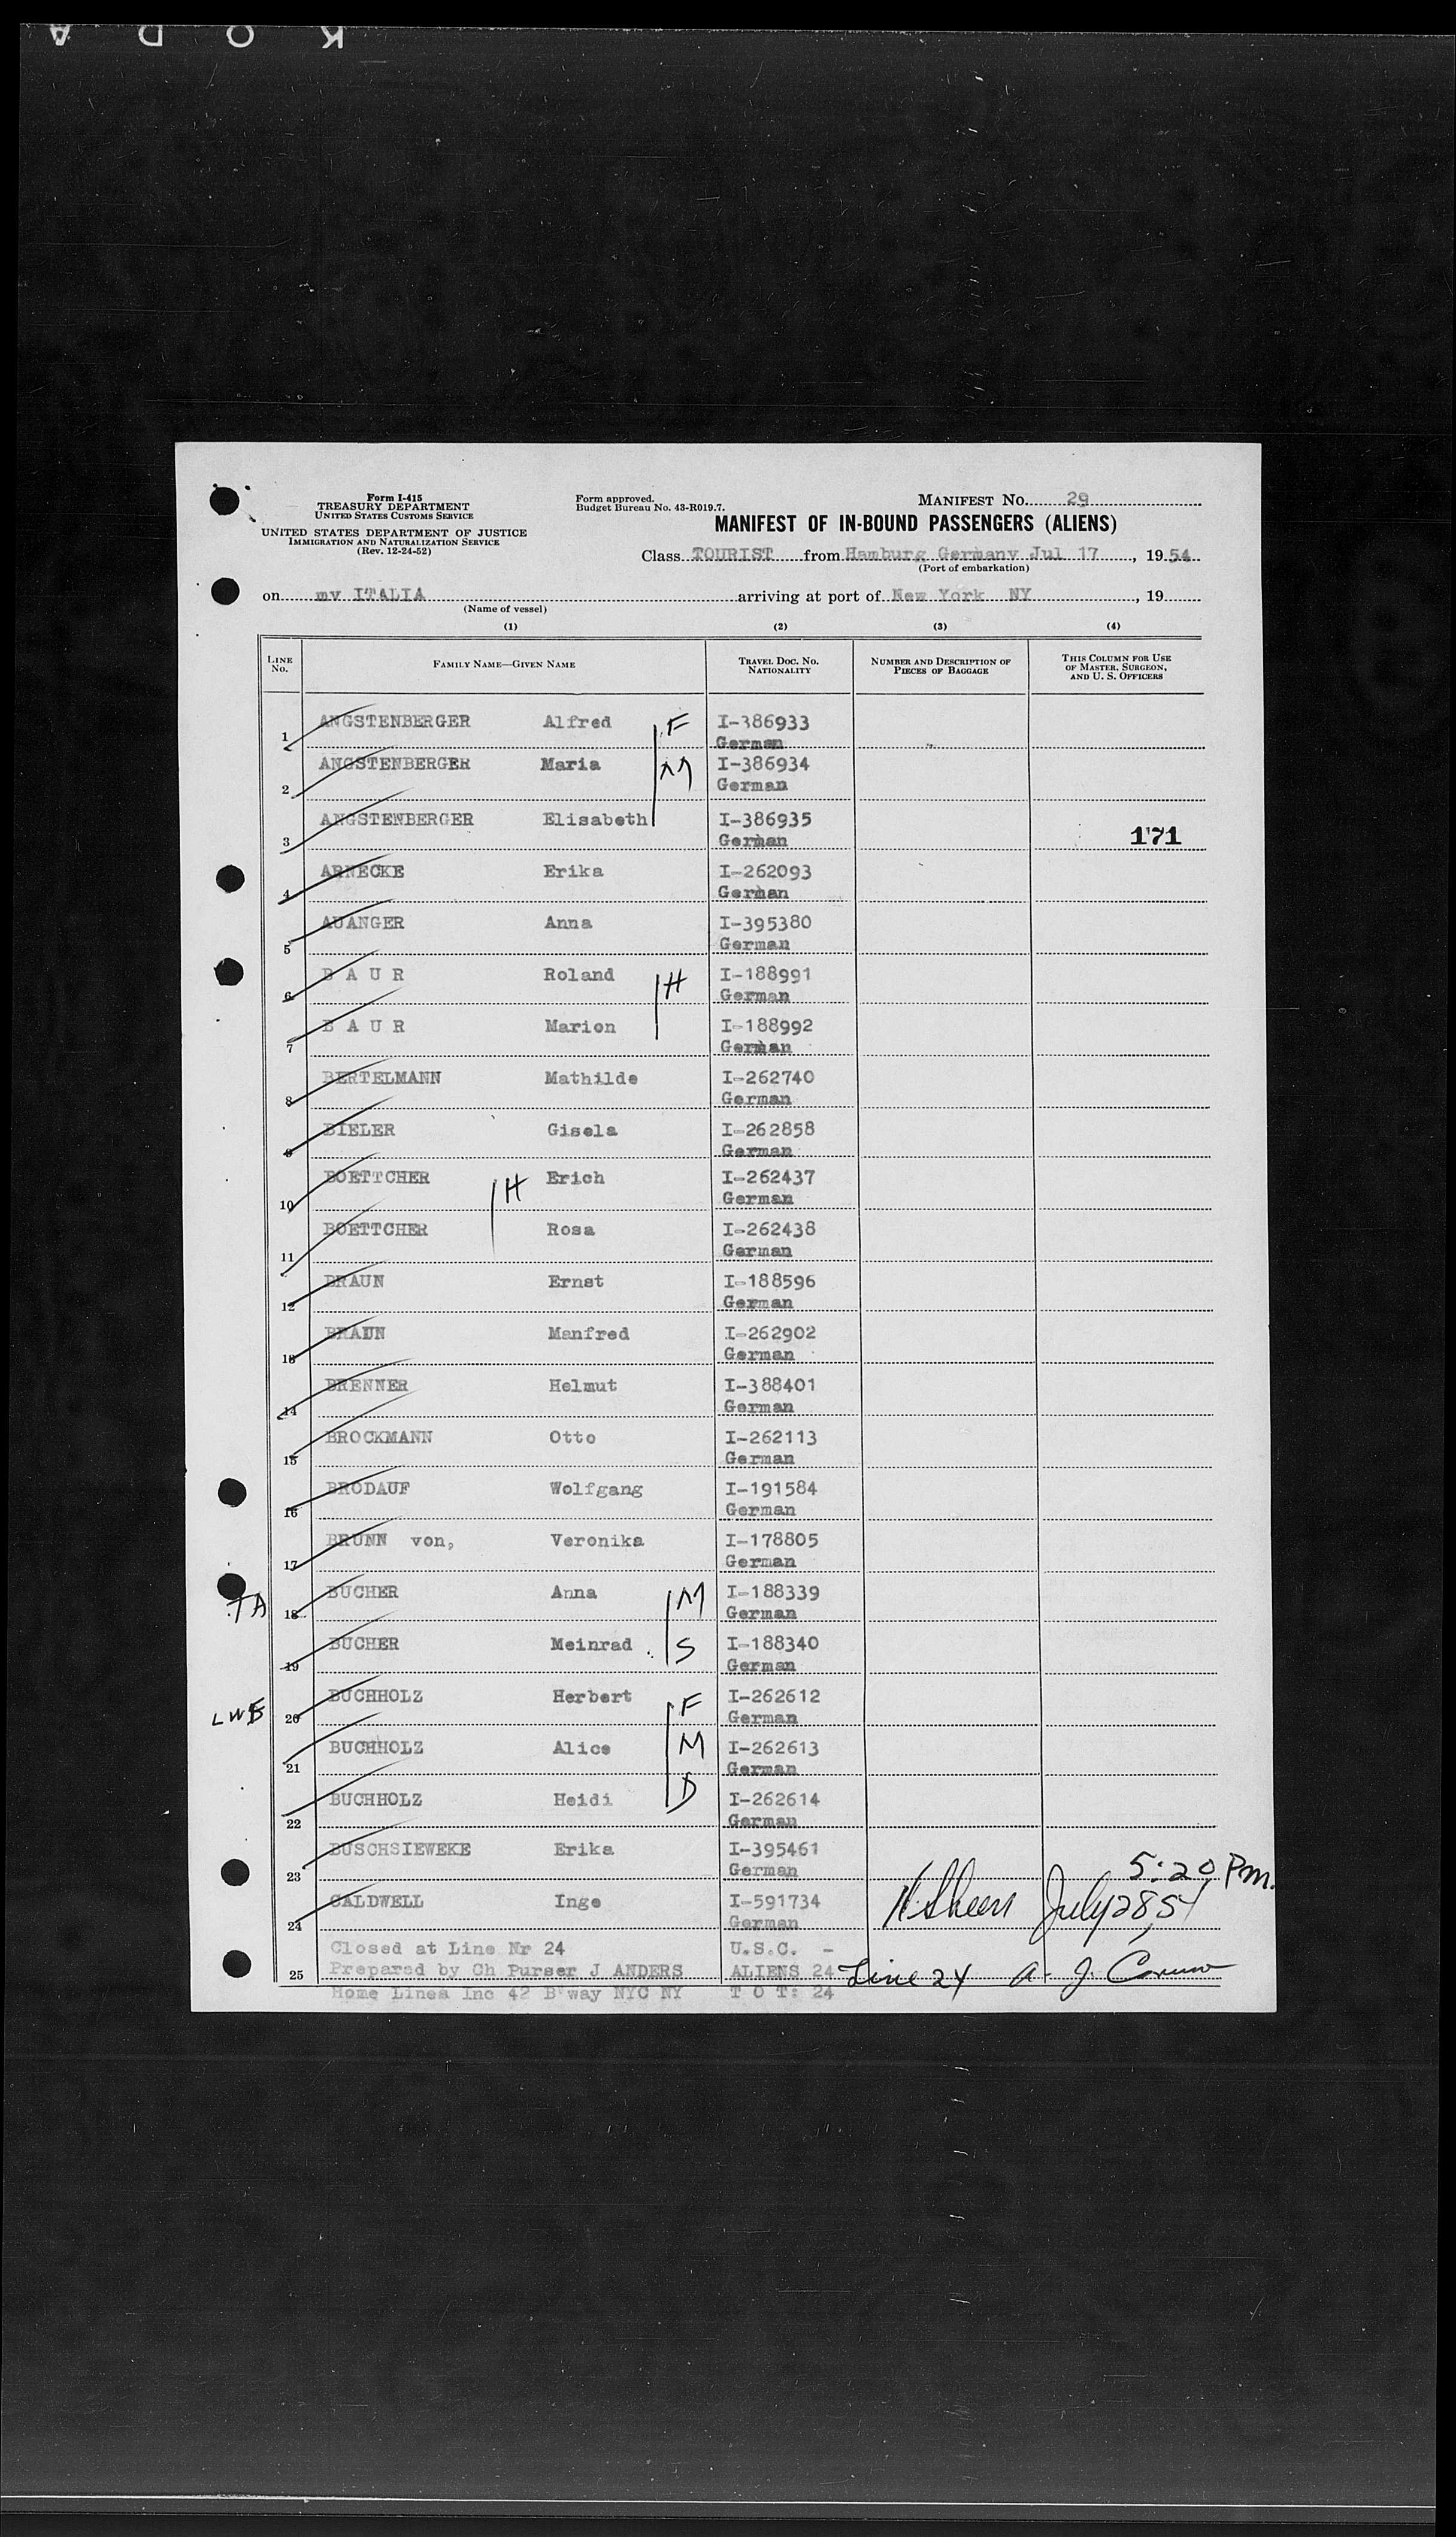 K O D A
Form I-415
TREASURY DEPARTMENT
UNITED STATES CUSTOMS SERVICE
UNITED STATES DEPARTMENT OF JUSTICE
IMMIGRATION AND NATURALIZATION SERVICE
(Rev. 12-24-52)
Form approved.
Budget Bureau No. 43-R019.7.
MANIFEST No. 29
MANIFEST OF IN-BOUND PASSENGERS (ALIENS)
Class TOURIST from Hamburg Germany Jul 17, 1954
(Port of embarkation)
on mv ITALIA arriving at port of New York NY, 19
(Name of vessel)
(1) (2) (3) (4)
LINE No. FAMILY NAME—GIVEN NAME TRAVEL DOC. NO. NATIONALITY NUMBER AND DESCRIPTION OF PIECES OF BAGGAGE THIS COLUMN FOR USE OF MASTER, SURGEON, AND U. S. OFFICERS
1 ANGSTENBERGER Alfred F I-386933
German
2 ANGSTENBERGER Maria M I-386934
German
3 ANGSTENBERGER Elisabeth I-386935
German 171
4 ARNECKE Erika I-262093
German
5 AUANGER Anna I-395380
German
6 B A U R Roland H I-188991
German
7 B A U R Marion I-188992
German
8 BERTELMANN Mathilde I-262740
German
9 BIELER Gisela I-262858
German
10 BOETTCHER H Erich I-262437
German
11 BOETTCHER Rosa I-262438
German
12 BRAUN Ernst I-188596
German
13 BRAUN Manfred I-262902
German
14 BRENNER Helmut I-388401
German
15 BROCKMANN Otto I-262113
German
16 BRODAUF Wolfgang I-191584
German
17 BRUNN von, Veronika I-178805
German
TA 18 BUCHER Anna M I-188339
German
19 BUCHER Meinrad S I-188340
German
20 BUCHHOLZ Herbert F I-262612
German
21 BUCHHOLZ Alice M I-262613
German
22 BUCHHOLZ Heidi D I-262614
German
23 BUSCHSIEWEKE Erika I-395461
German 5:20 Pm.
24 CALDWELL Inge I-591734 July 28, 54
German
Closed at Line Nr 24 U.S.C. -
25 Prepared by Ch Purser J ANDERS ALIENS 24 Line 24 A. J. Caruso
Home Lines Inc 42 B'way NYC NY T O T: 24